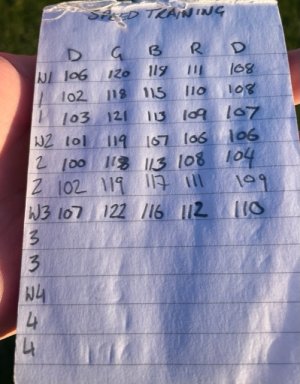 SPEED TRAINING
D G B R D
W1 106 120 118 111 108
1 102 118 115 110 108
1 103 121 113 109 107
W2 101 119 107 106 106
2 100 118 113 108 104
2 102 119 117 111 109
W3 107 122 116 112 110
3
3
W4
4
4